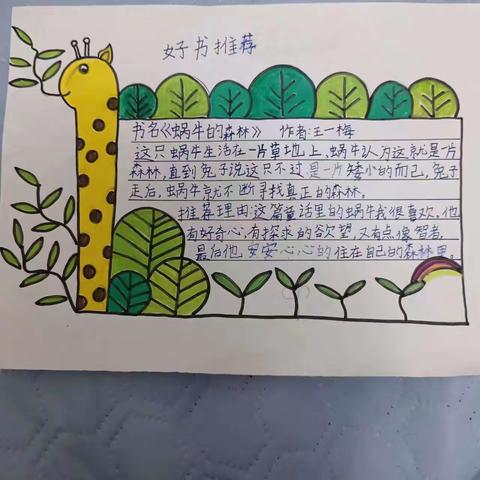 好书推荐
书名《蜗牛的森林》 作者:王一梅
这只蜗牛生活在一片草地上,蜗牛认为这就是一片
森林,直到兔子说这只不过是一片矮小的而已,兔子
走后,蜗牛就不断寻找真正的森林。
推荐理由:这篇童话里的蜗牛我很喜欢,他
有好奇心,有探求的欲望,又有点像智者,
最后他,安安心心的住在自己的森林里。